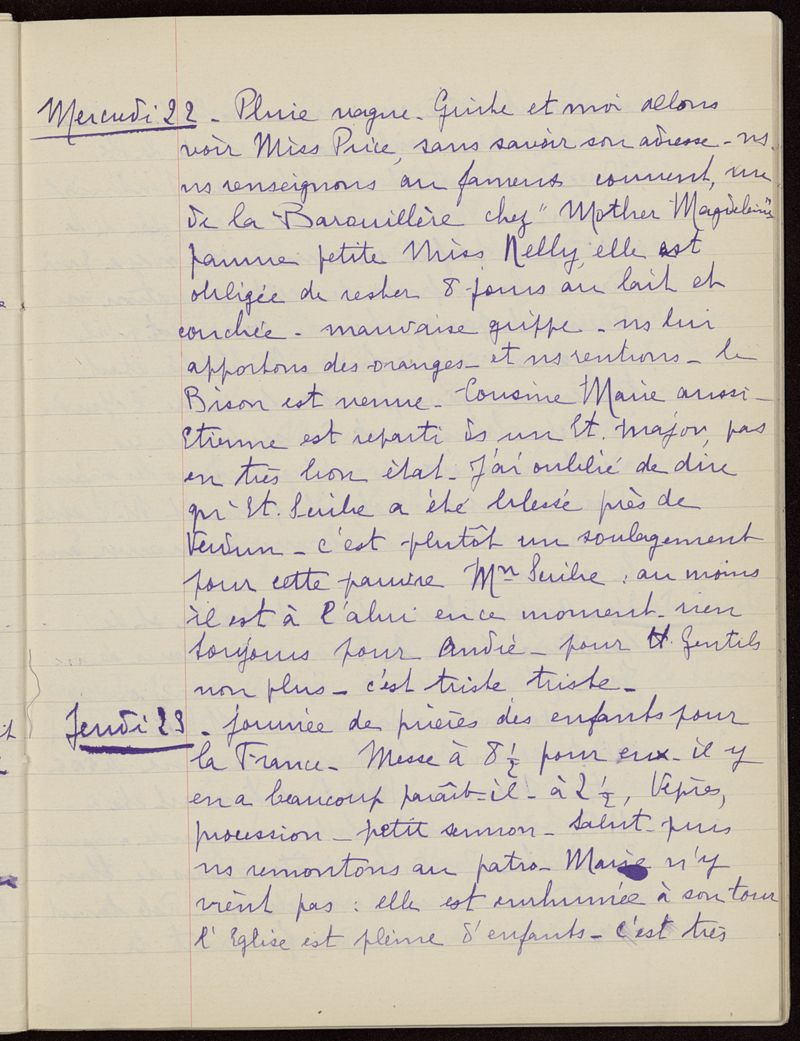 Mercredi 22 - Pluie vague - Guite et moi allons
voir Miss Price, sans savoir son adresse - ns
ns renseignons au fameux couvent, rue
de la Barouillère chez "Mother Magdeleine"
pauvre petite Miss Nelly, elle est
obligée de rester 8 jours au lait et
couchée - mauvaise grippe - ns lui
apportons des oranges - et ns rentrons - le
Bison est venue - Cousine Marie aussi -
Etienne est reparti ds un Et. Major, pas
en très bon état - J'ai oublié de dire
qu'Et. Scribe a été blessé près de
Verdun - c'est plutôt un soulagement
pour cette pauvre Mn Scribe : au moins
il est à l'abri en ce moment - rien
toujours pour André - pour H. Gentils
non plus - c'est triste triste -
Jeudi 23 - journée de prières des enfants pour
la France - Messe à 8 ½ pour eux - il y
en a beaucoup paraît-il - à 2 ½, Vêpres,
procession - petit sermon - Salut - puis
ns remontons au patro - Marie n'y
vient pas : elle est enrhumée à son tour
l'Eglise est pleine d'enfants - c'est très